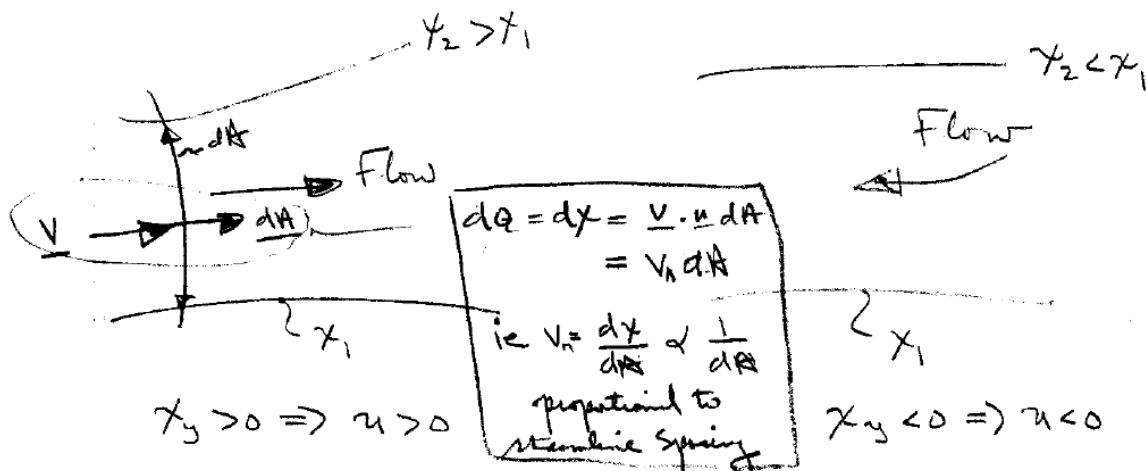 ψ₂ > ψ₁
ψ₂ < ψ₁
dA
Flow
Flow
V
dA
dQ = dψ = V · n dA
= Vₙ dA
ie Vₙ = dψ/dA ∝ 1/dA
proportional to
streamline spacing
ψ₁
ψ₁
ψ_y > 0 ⇒ u > 0
ψ_y < 0 ⇒ u < 0